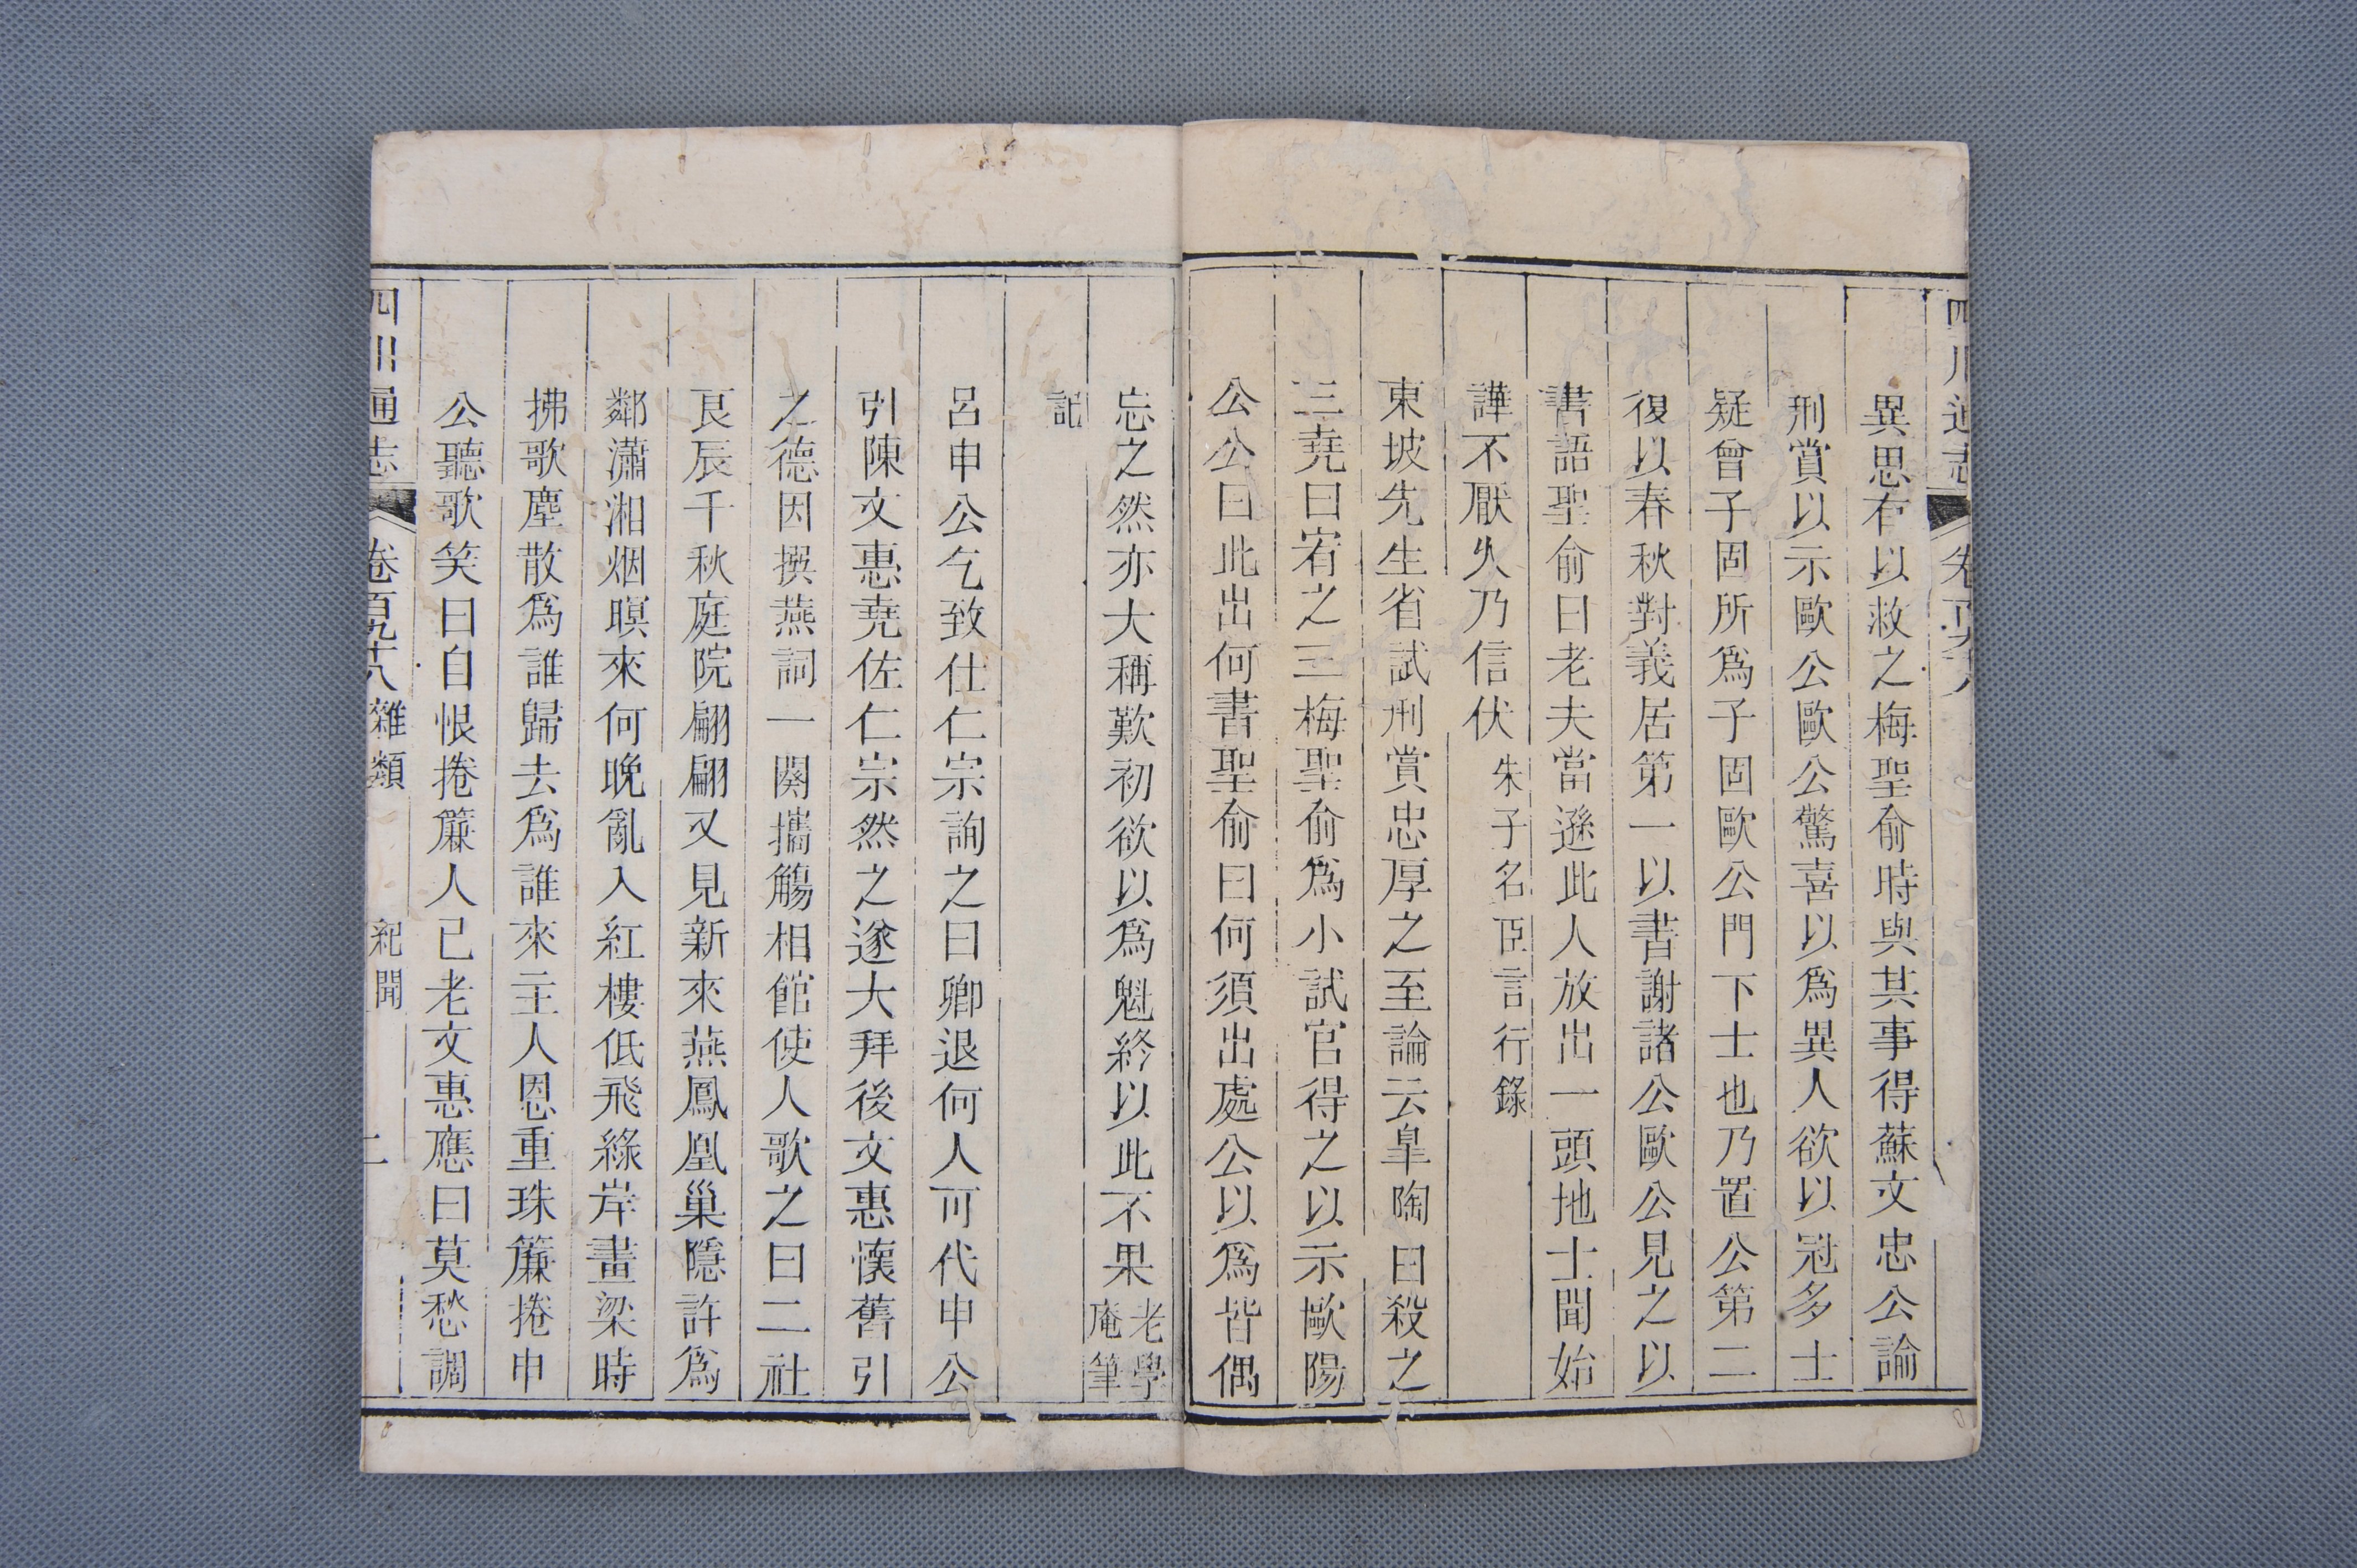 四川通志
卷百九十八
異思有以救之梅聖俞時與其事得蘇文忠公論
刑賞以示歐公歐公驚喜以爲異人欲以冠多士
疑曾子固所爲子固歐公門下士也乃置公第二
復以春秋對義居第一以書謝諸公歐公見之以
書語聖俞曰老夫當遜此人放出一頭地士聞始
譁不厭久乃信伏朱子名臣言行錄
東坡先生省試刑賞忠厚之至論云臯陶曰殺之
三堯曰宥之三梅聖俞爲小試官得之以示歐陽
公公曰此出何書聖俞曰何須出處公以爲皆偶
忘之然亦大稱歎初欲以爲魁終以此不果老學庵筆
記
呂申公乞致仕仁宗詢之曰卿退何人可代申公
引陳文惠堯佐仁宗然之遂大拜後文惠懷舊引
之德因撰燕詞一闋攜觴相館使人歌之曰二社
良辰千秋庭院翩翩又見新來燕鳳凰巢隱許爲
鄰瀟湘烟暝來何晚亂入紅樓低飛綠岸畫梁時
拂歌塵散爲誰歸去爲誰來主人恩重珠簾捲申
公聽歌笑曰自恨捲簾人已老文惠應曰莫愁調
四川通志
卷百九十八雜類
紀聞
二